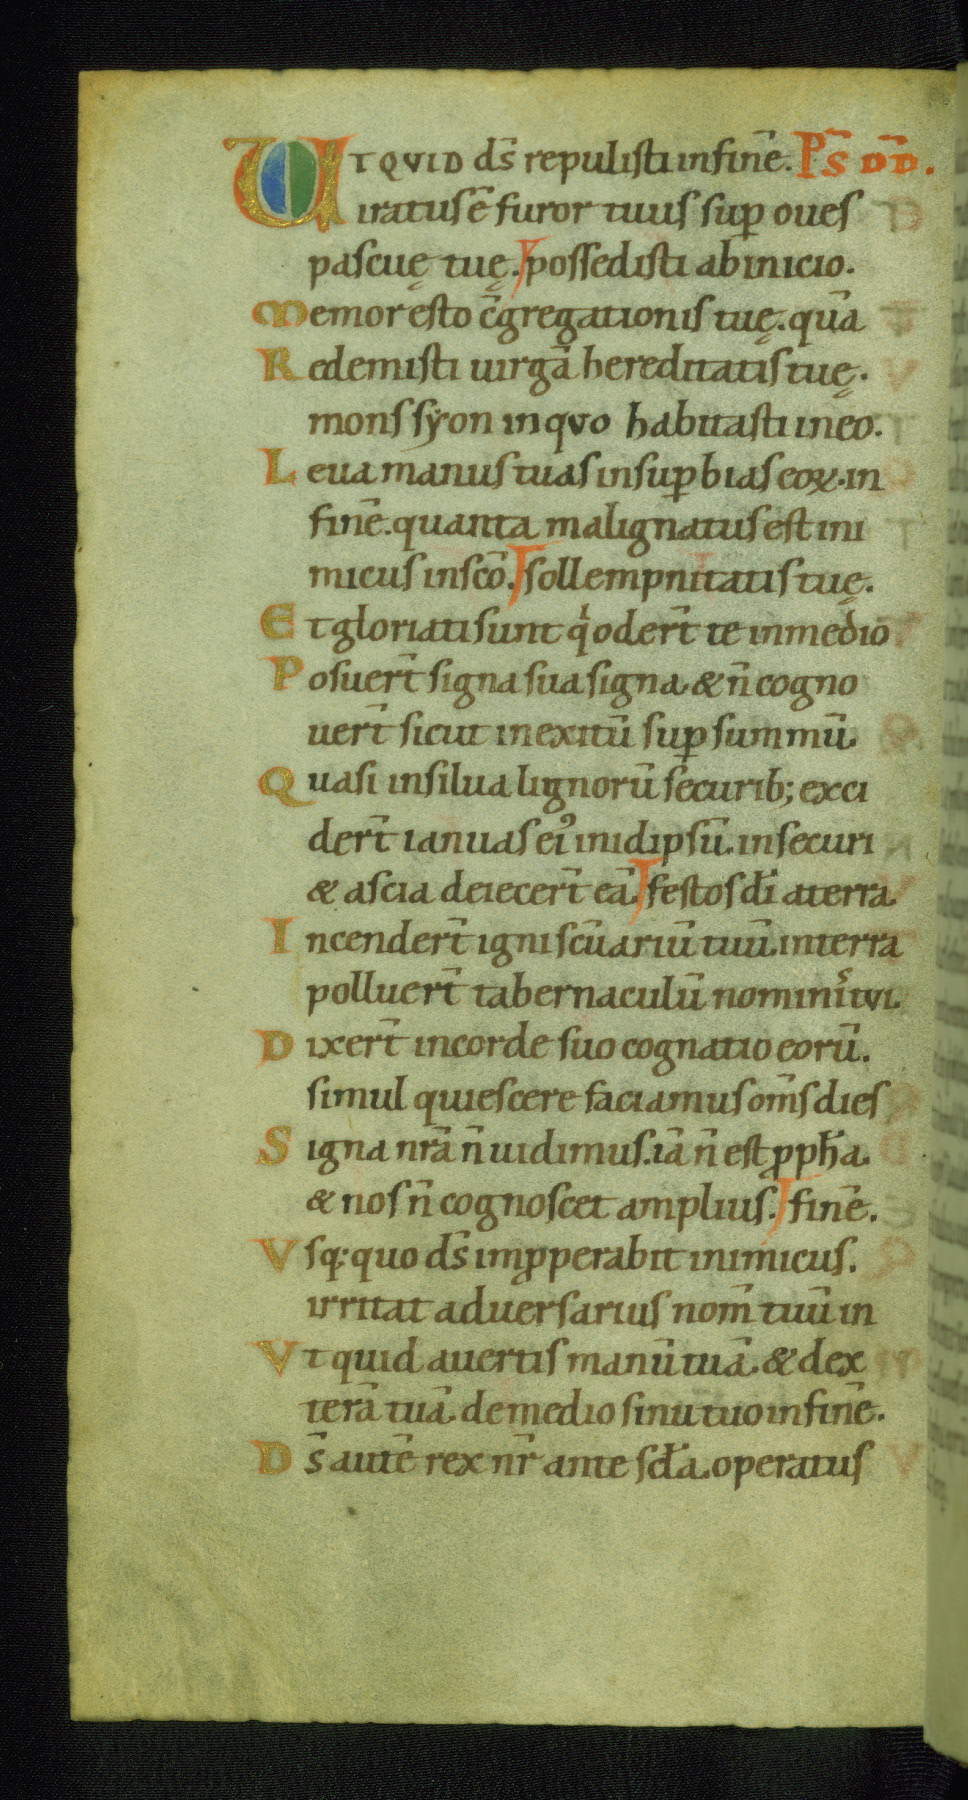 UT QVID ds̄ repulisti in finē. Ps̄ DD̄.
iratus ē furor tuus sup̄ oues
pascuę tuę. possedisti ab inicio.
Memor esto c̄gregationis tuę. quā
Redemisti uirgā hereditatis tuę.
mons syon in qvo habitasti in eo.
Leua manus tuas in sup̄bias eoꝝ. in
finē. quanta malignatus est ini
micus in sc̄o. sollempnitatis tuę.
Et gloriati sunt qͥ oder̄t te in medio
Posuer̄t signa sua signa. & n̄ cogno
uer̄t sicut in exitū sup̄ summū.
Quasi in silua lignorū securib; exci
der̄t ianuas ei᾿ in idipsū. in securi
& ascia deiecer̄t eā. festos dī a terra.
Incender̄t igni sc̄uariū tuū. in terra
polluer̄t tabernaculū nominis tvi.
Dixer̄t in corde suo cognatio eorū.
simul quiescere faciamus om̄s dies
Signa nr̄a n̄ uidimus. iā n̄ est ꝓph̄a.
& nos n̄ cognoscet amplius. finē.
Vsq; quo ds̄ imꝓperabit inimicus.
irritat aduersarius nom̄ tuū in
Vt quid auertis manū tuā. & dex
terā tuā. de medio sinu tuo in finē.
Ds̄ autē rex nr̄ ante sc̄la. operatus